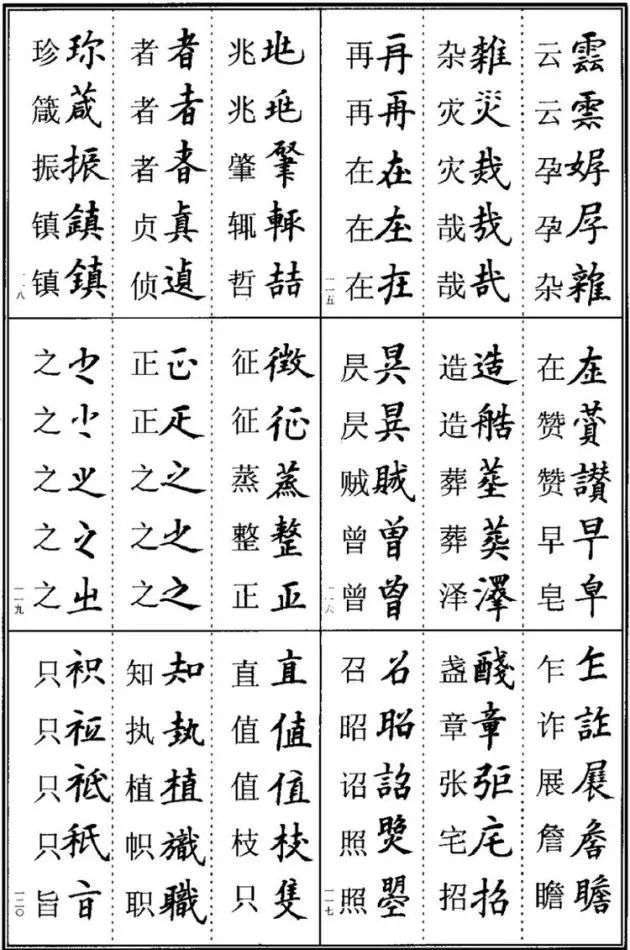 云雲 云雲 孕 孕 杂雜
杂雜 灾災 灾烖 哉哉 哉哉
再再 再再 在在 在在 在在
一一五
在在 赞賛 赞讃 早早 皂皁
造造 造艁 葬塟 葬葬 泽澤
昃昃 昃昃 贼賊 曾曽 曾曾
一一六
乍乍 诈詐 展展 詹詹 瞻瞻
盏醆 章章 张张 宅宅 招招
召召 昭昭 诏詔 照照 照曌
一一七
兆兆 兆兆 肇肇 辄輙 哲喆
者者 者者 者者 贞真 侦遉
珍珎 箴葴 振振 镇鎮 镇鎮
一一八
征徴 征征 蒸蒸 整整 正正
正正 正疋 之之 之之 之之
之之 之之 之之 之之 之㞢
一一九
直直 值值 值值 枝枝 只隻
知知 执執 植植 帜旘 职職
只 只 只 只 旨
一二〇